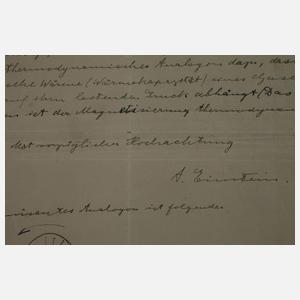 thermodynamisches Analogon dazu, dass
sche Wärme (Wärmekapazität) eines Gases
auf ihm lastenden Druck abhängt. Das
ist der Magnetisierung thermodynam
Mit vorzüglicher Hochachtung
A. Einstein.
Analogon ist folgendes